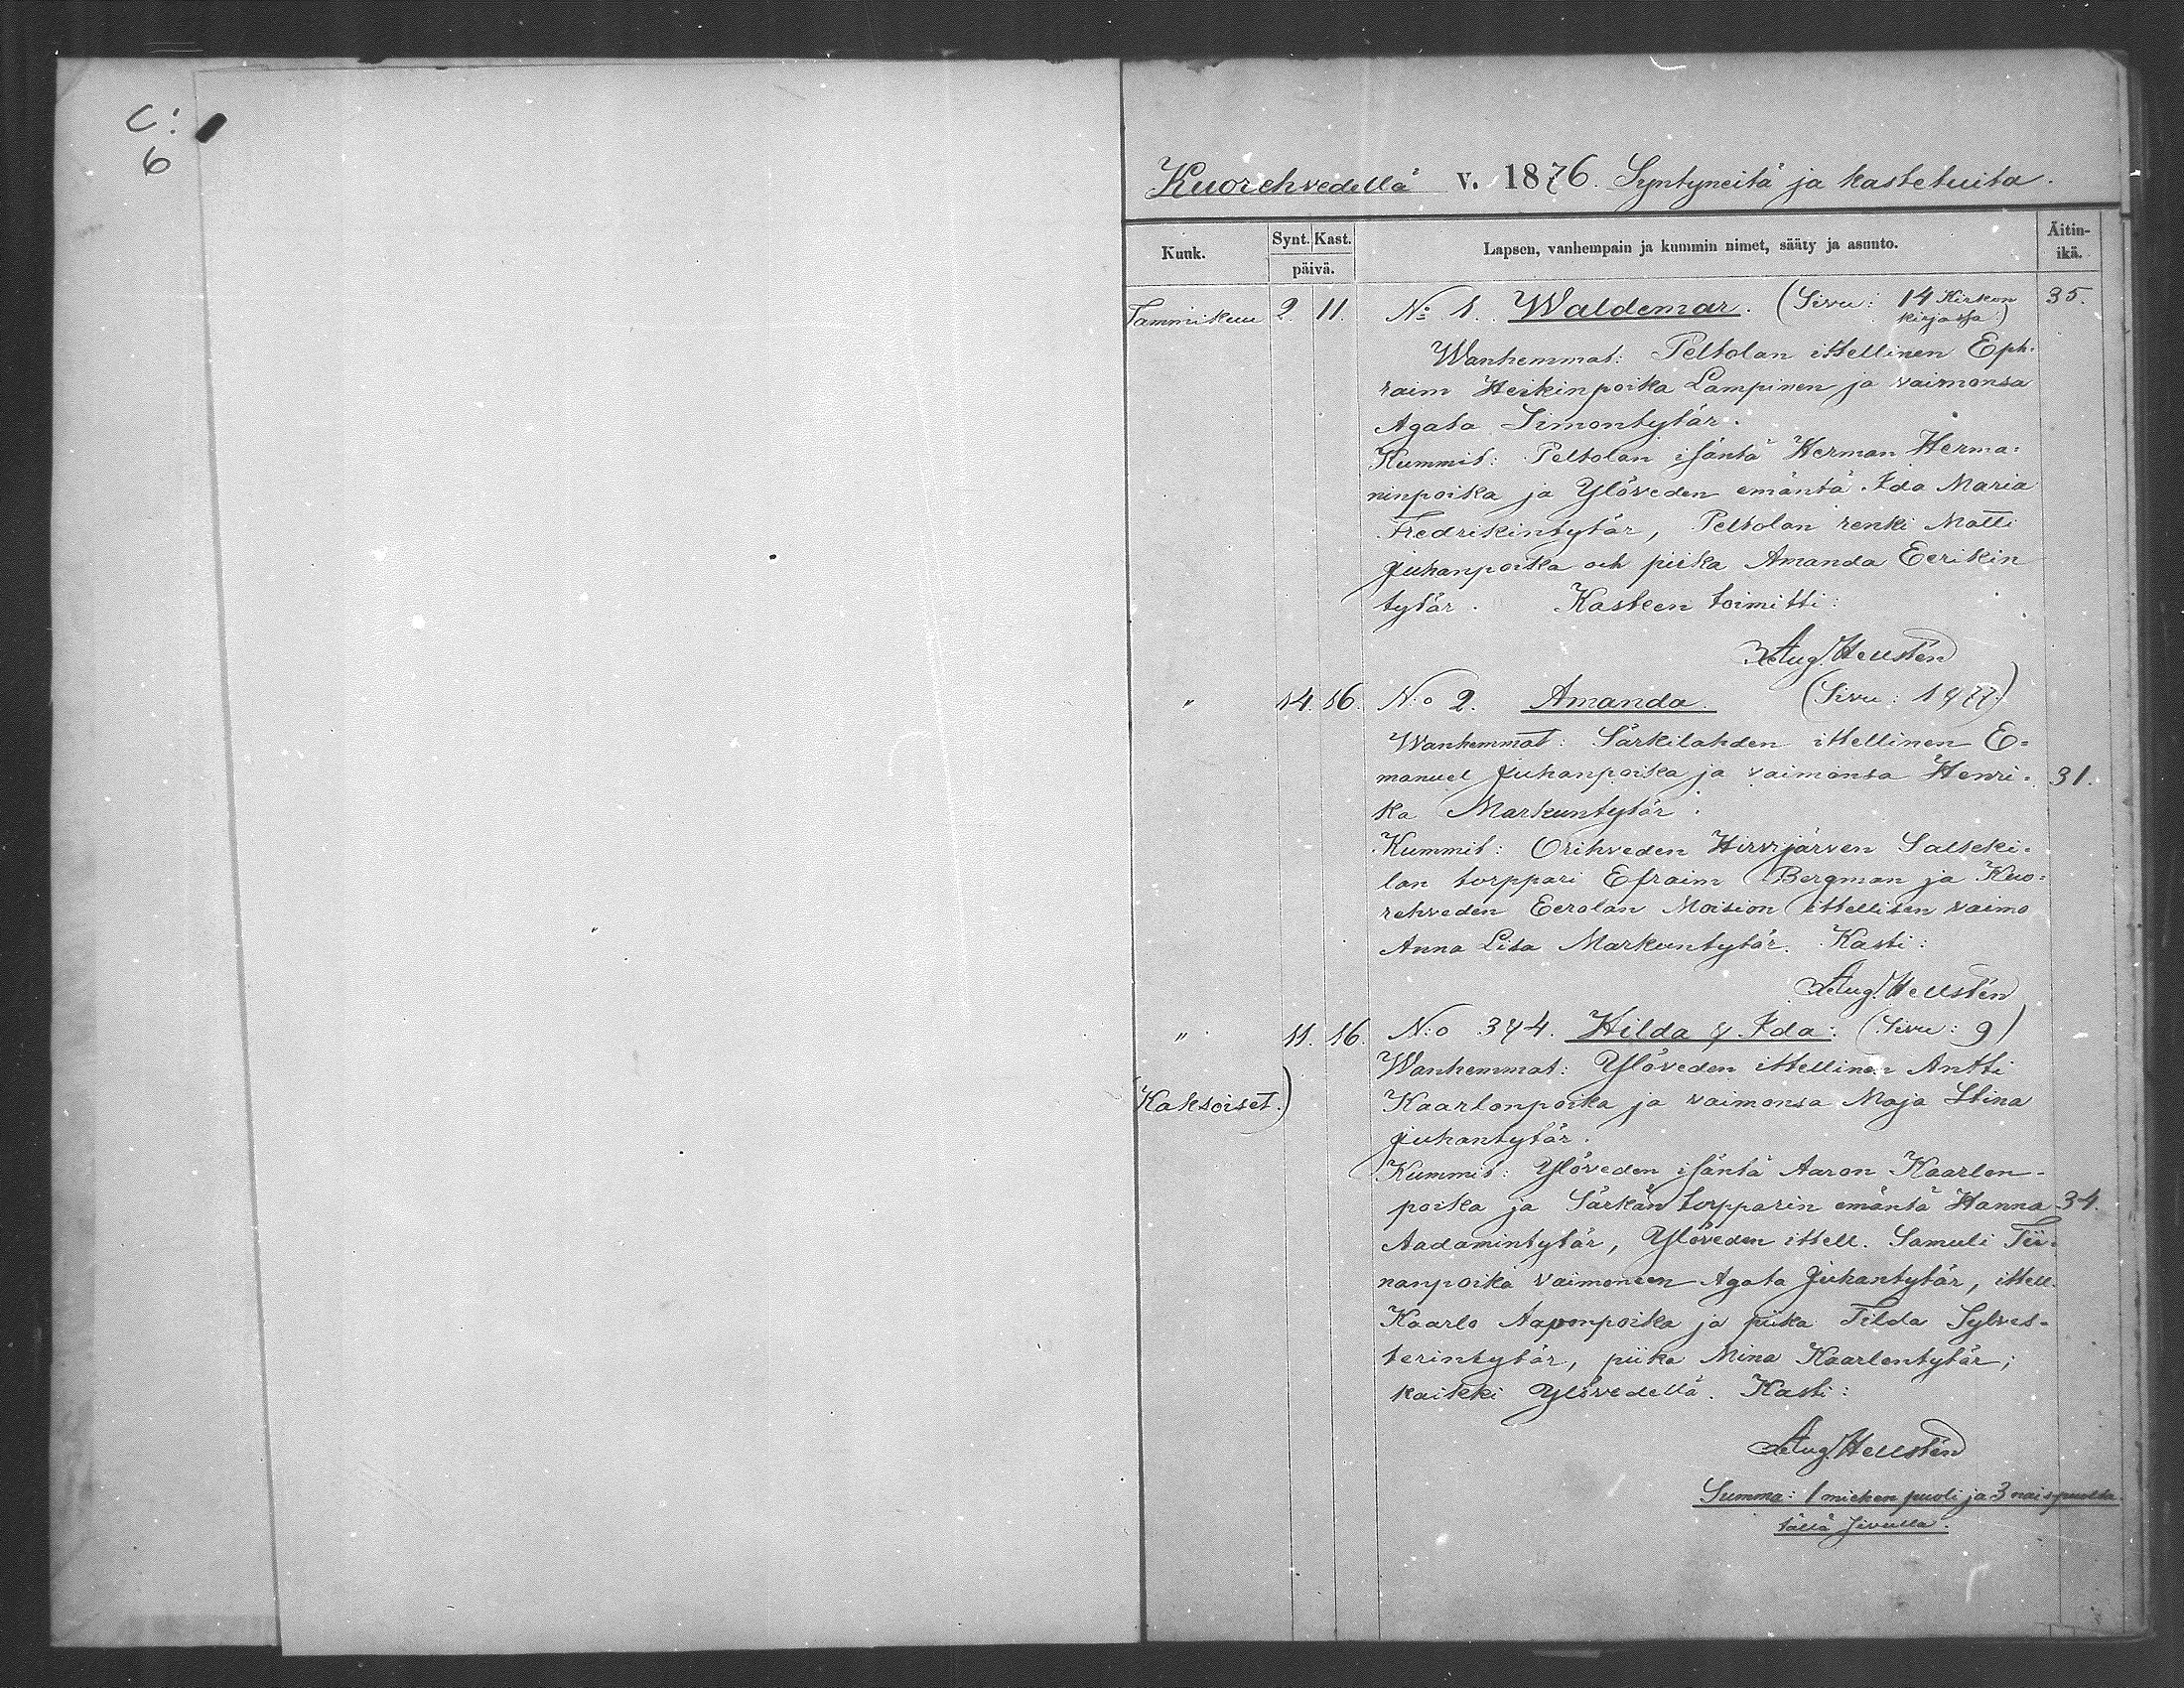 C:
6
Kuorehvedellä v. 1876. Syntyneitä ja kastetuita.
Kuuk. Synt. Kast. päivä. Lapsen, vanhempain ja kummin nimet, sääty ja asunto. Äitin-ikä.
Tammikuu 2. 11. No 1. Waldemar. (Sivu: 14 Kirkon kirjassa) 35.
Wanhemmat: Peltolan ittellinen Eph-
raim Heikinpoika Lampinen ja vaimonsa
Agata Simontytär.
Kummit: Peltolan isäntä Herman Herma-
ninpoika ja Ylöveden emäntä Ida Maria
Fredrikintytär, Peltolan renki Matti
Juhanpoika och piika Amanda Eerikin
tytär. Kasteen toimitti:
Aug. Hellstén
" 14. 16. N:o 2. Amanda. (Sivu:
Wanhemmat: Särkilahden ittellinen E-
manuel Juhanpoika ja vaimonsa Henri- 31.
ka Markuntytär.
Kummit: Orihveden Hirvijärven
lan torppari Efraim Bergman ja Kuo-
rehveden Eerolan Moision ittellisen vaimo
Anna Lisa Markuntytär. Kasti:
Aug. Hellstén
" 11. 16. N:o 3 & 4. Hilda & Ida: (Sivu: 9)
Wanhemmat: Ylöveden ittellinen Antti
(Kaksoiset.) Kaarlonpoika ja vaimonsa Maja Stina
Juhantytär.
Kummit: Ylöveden isäntä Aaron Kaarlon-
poika ja Särkän torpparin emäntä Hanna 34.
Aadamintytär, Ylöveden ittell. Samuli Tii-
nanpoika vaimoneen Agata Juhantytär, ittell.
Kaarlo Aaponpoika ja piika Tilda Sylves-
terintytär, piika Mina Kaarlontytär;
kaikki Ylövedellä. Kasti:
Aug. Hellstén
Summa: 1 miehen puoli ja 3 naispuolta
tällä sivulla.